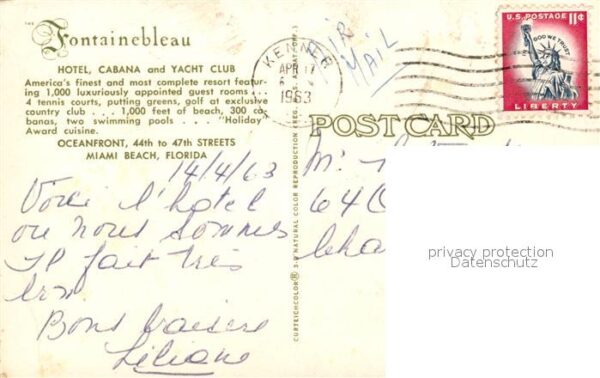 THE
Fontainebleau
HOTEL, CABANA and YACHT CLUB
America's finest and most complete resort featur-
ing 1,000 luxuriously appointed guest rooms . . .
4 tennis courts, putting greens, golf at exclusive
country club . . . 1,000 feet of beach, 300 ca-
banas, two swimming pools . . . . "Holiday"
Award cuisine.
OCEANFRONT, 44th to 47th STREETS
MIAMI BEACH, FLORIDA
14/4/63
Voici l'hotel
ou nous sommes
Il fait très
bon
Bons baisers
Liliane
CURTEICHCOLOR® 3-D NATURAL COLOR REPRODUCTION
KENNER
APR 17
1963
AIR
MAIL
U.S. POSTAGE 11¢
IN GOD WE TRUST
LIBERTY
POST CARD
64
privacy protection
Datenschutz